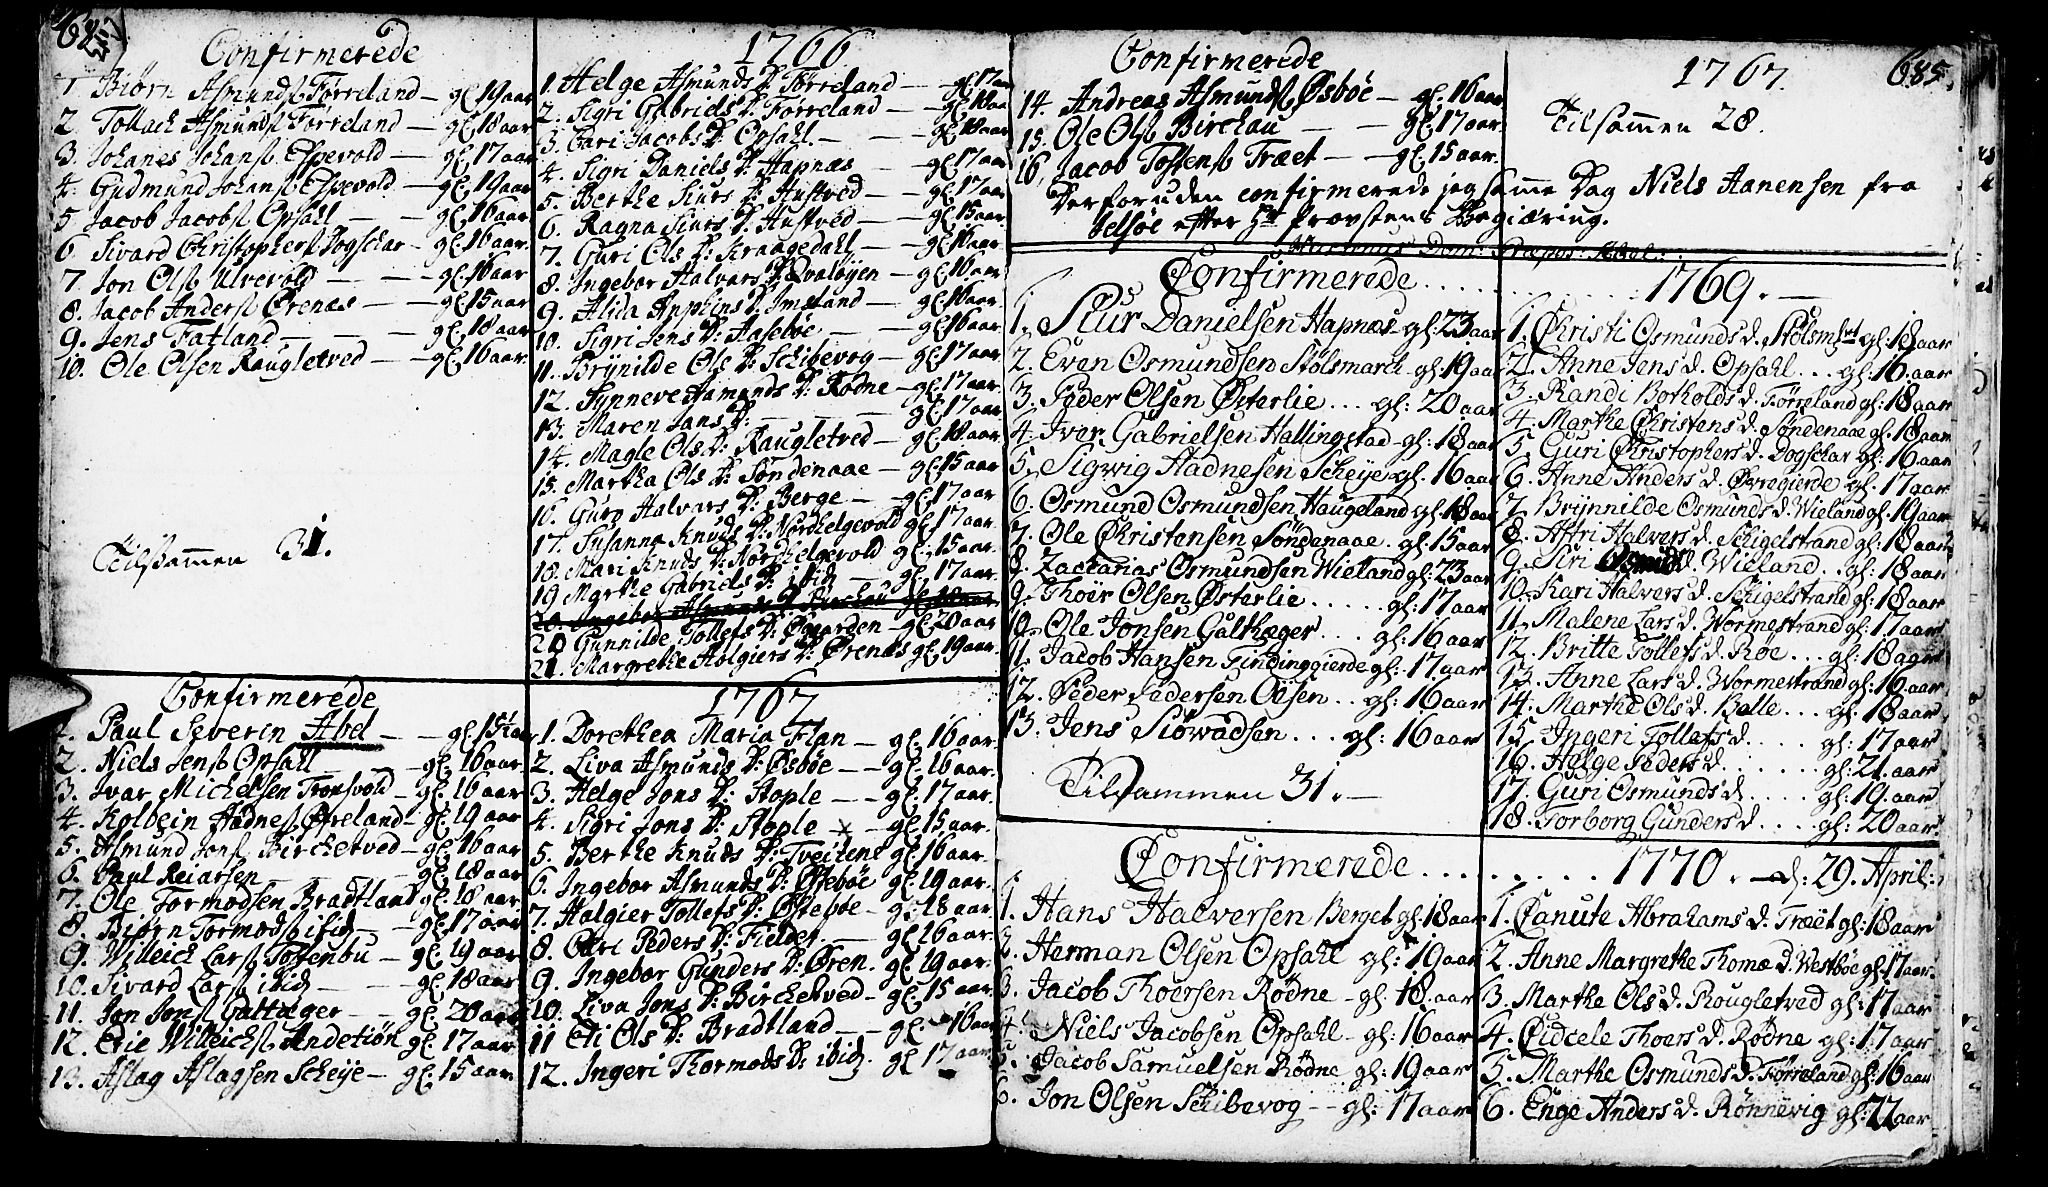 Confirmerede 1766
1 Biørn Asmunds. Førreland — gl. 19 aar
2. Tollach Asmunds. Førreland — gl. 18 aar
3. Johanes Johans. Espevold — gl. 17 aar
4. Gudmund Johans. Espevold — gl. 19 aar
5 Jacob Jacobs. Opsahl — — gl. 16 aar
6. Sivard Christophers. Dogschar — gl. 16 aar.
7. Jon Ols. Ulvevold — — gl. 16 aar
8. Jacob Anders. Ørenæs — — gl. 15 aar
9. Jens Fatland — — gl. 18 aar.
10. Ole Olsen Raugletved — gl. 16 aar.
Tilsammen 31.
1. Helge Asmunds D: Førreland — gl. 17 aar
2. Sigri Gabriels D: Førreland — gl. 18 aar
3. Cari Jacobs D: Opsahl — — gl. 18 aar
4. Sigri Daniels D: Hapnæs — gl. 17 aar
5. Berthe Siurs D: Hustved — gl. 17 aar
6. Ragna Siurs D: Hustved — gl. 15 aar
7. Guri Ols D: Kraagedahl — gl. 16 aar.
8. Ingebor Halvars D: Qvaløyen — gl. 16 aar
9. Alida D: Imsland — gl. 16 aar
10. Sigri Jens D: Hasebøe — gl. 16 aar.
11. Brÿnilde Ols D: Schibevog — gl. 17 aar.
12. Synneve Asmunds D: Rødne — gl. 17 aar.
13. Maren Jans D: — — gl. 17 aar
14. Magle Ols D: Raugletved — gl. 18 aar.
15. Martha Ols D: Søndenaae — gl. 15 aar
16. Guro Halvars D: Berge — gl. 17 aar
17. Susanna Knuds D: Nordhelgevold gl. 17 aar.
18. Mari Knuds D: Nordhelgevold gl. 15 aar.
19 Myrthe Gabriels D: ibid — gl. 17 aar.
20. Ingebor Asmunds D: Birchau gl. 18 aar
20 Gunnilde Tollefs D: Øgaarden — gl. 20 aar
21. Margrethe Holgiers D: Ørenæs gl. 19 aar.
Confirmerede 1767
1. Paul Severin Abel — — gl. 15½ aar
2. Niels Jens. Opsahl — gl. 16 aar
3. Ivar Michelsen Tronsvold — gl. 16 aar
4. Kolbein Hadnes. Øfreland — gl. 19 aar
5. Asmund Jons. Birchetved — gl. 16 aar
6. Paul Reiarsen — — gl. 18 aar
7. Ole Tormodsen Bradtland gl. 18 aar.
8. Biørn Tormods. ibid — gl. 17 aar
9. Willeich Lars. Tostenbu — gl. 19 aar
10. Sivard Lars. ibid — — gl. 18 aar
11. Jon Jons. Galtæger — gl. 20 aar
12. Eric Willeichs. Andetiøn gl. 17 aar.
13. Aslag Aslagsen Scheije — gl. 15 aar.
1. Dorethea Maria Flan — gl. 16 aar.
2. Liva Asmunds D: Øsbøe — — gl. 16 aar.
3. Helge Jons D: Stople — — gl. 17 aar.
4. Sigri Jons D: Stople — x — gl. 15 aar.
5. Berthe Knuds D: Tveitene gl. 16 aar.
6. Ingebor Asmunds D: Østebøe gl. 19 aar.
7. Halgier Tollefs D: Østebøe — gl. 18 aar.
8. Cari Peders D: — gl. 16 aar.
9. Ingebor Gunders D: Øren. gl. 19 aar.
10. Liva Jons D: Birchetved — gl. 15 aar.
11 Eli Ols D: Bradtland — — gl. 16 aar
12. Ingeri Thormods D: ibid. gl 17 aar.
Confirmerede 1767. 685.
14. Andreas Asmunds. Øsbøe — gl. 16 aar
15. Ole Ols. Birchau — — gl. 17 aar.
16. Jacob Tostens. Træet — — gl. 15 aar.
Tilsammen 28.
Derforuden confirmerede jeg samme Dag Niels Aanensen fra
Jelsøe efter Hr. Provstens Begiæring.
Confirmerede . . . . . . . . 1769. —
1. Siur Danielsen Hapnæs gl: 23 aar
2. Even Osmundsen Stølsmarch gl: 19 aar
3. Peder Olsen Østerlie . . . gl: 20 aar
4. Iver Gabrielsen Hallingstad - gl: 18 aar
5. Sigwig Hadnesen Scheije gl. 16 aar
6. Osmund Osmundsen Haugeland gl: 18 aar
7. Ole Christensen Søndenaae. gl: 15 aar
8. Zacharias Osmundsen Wieland gl: 23 aar
9. Thoer Olsen Østerlie . . . . . gl: 17 aar
10. Ole Jonsen Galthæger . . . gl: 16 aar
11. Jacob Hansen Findinggierde gl: 17 aar
12. Peder Pedersen Øijsen . . gl: 16 aar
13. Jens Siøwadsen . . . gl: 16 aar
Tilsammen 31. —
1. Christi Osmunds d. Stølsm. gl: 18 aar
2. Anne Jens d. Opsahl . . . gl: 16. aar
3. Randi Botholds d. Førreland gl: 18 aar
4. Marthe Christens d. Søndenaae gl. 18 aar
5. Guri Christophers d. Dogschar gl: 16 aar
6. Anne Anders d. Øvregierde gl: 17 aar
7. Brijnnilde Osmunds d. Wieland gl: 19 aar
8. Affri Halvers d. Schigelstrand gl: 18 aar
9. Siri Osmunds d. Wieland . . gl: 18 aar
10. Kari Halvers d. Schigelstrand gl: 18 aar
11. Malene Lars d. Wormestrand gl: 17 aar
12. Britte Tollefs d. Røe . . . gl: 18 aar
13. Anne Lars d. Wormestrand gl: 16 aar
14. Marthe Ols d. Balle . . . gl: 18 aar
15. Ingeri Tollefs d. . . . . gl: 17 aar
16. Helge Peders d. . . . . . gl: 21. aar
17. Guri Osmunds d. . . . . gl: 19. aar
18. Torborg Gunders d. . . . gl: 20 aar
Confirmerede . . . . . . . . . 1770. — d: 29. April:
1. Hans Halversen Berget gl: 18 aar
2. Herman Olsen Opsahl gl: 19 aar
3. Jacob Thoersen Rødne - gl: 18. aar
4. Niels Jacobsen Opsahl - gl: 16 aar
5. Jacob Samuelsen Rødne gl: 19 aar
6. Jon Olsen Schibevog - - gl: 17 aar
1. Canute Abrahams d. Træet gl: 18 aar
2. Anne Margrethe Thomæ d. Westbøe gl: 17 aar.
3. Marthe Ols d. Rougletved gl: 17 aar
4. Cidcele Thoers d. Rødne gl: 17 aar
5. Marthe Osmunds d. Førreland gl: 16 aar
6. Enge Anders d. Rønnevig gl: 22 aar